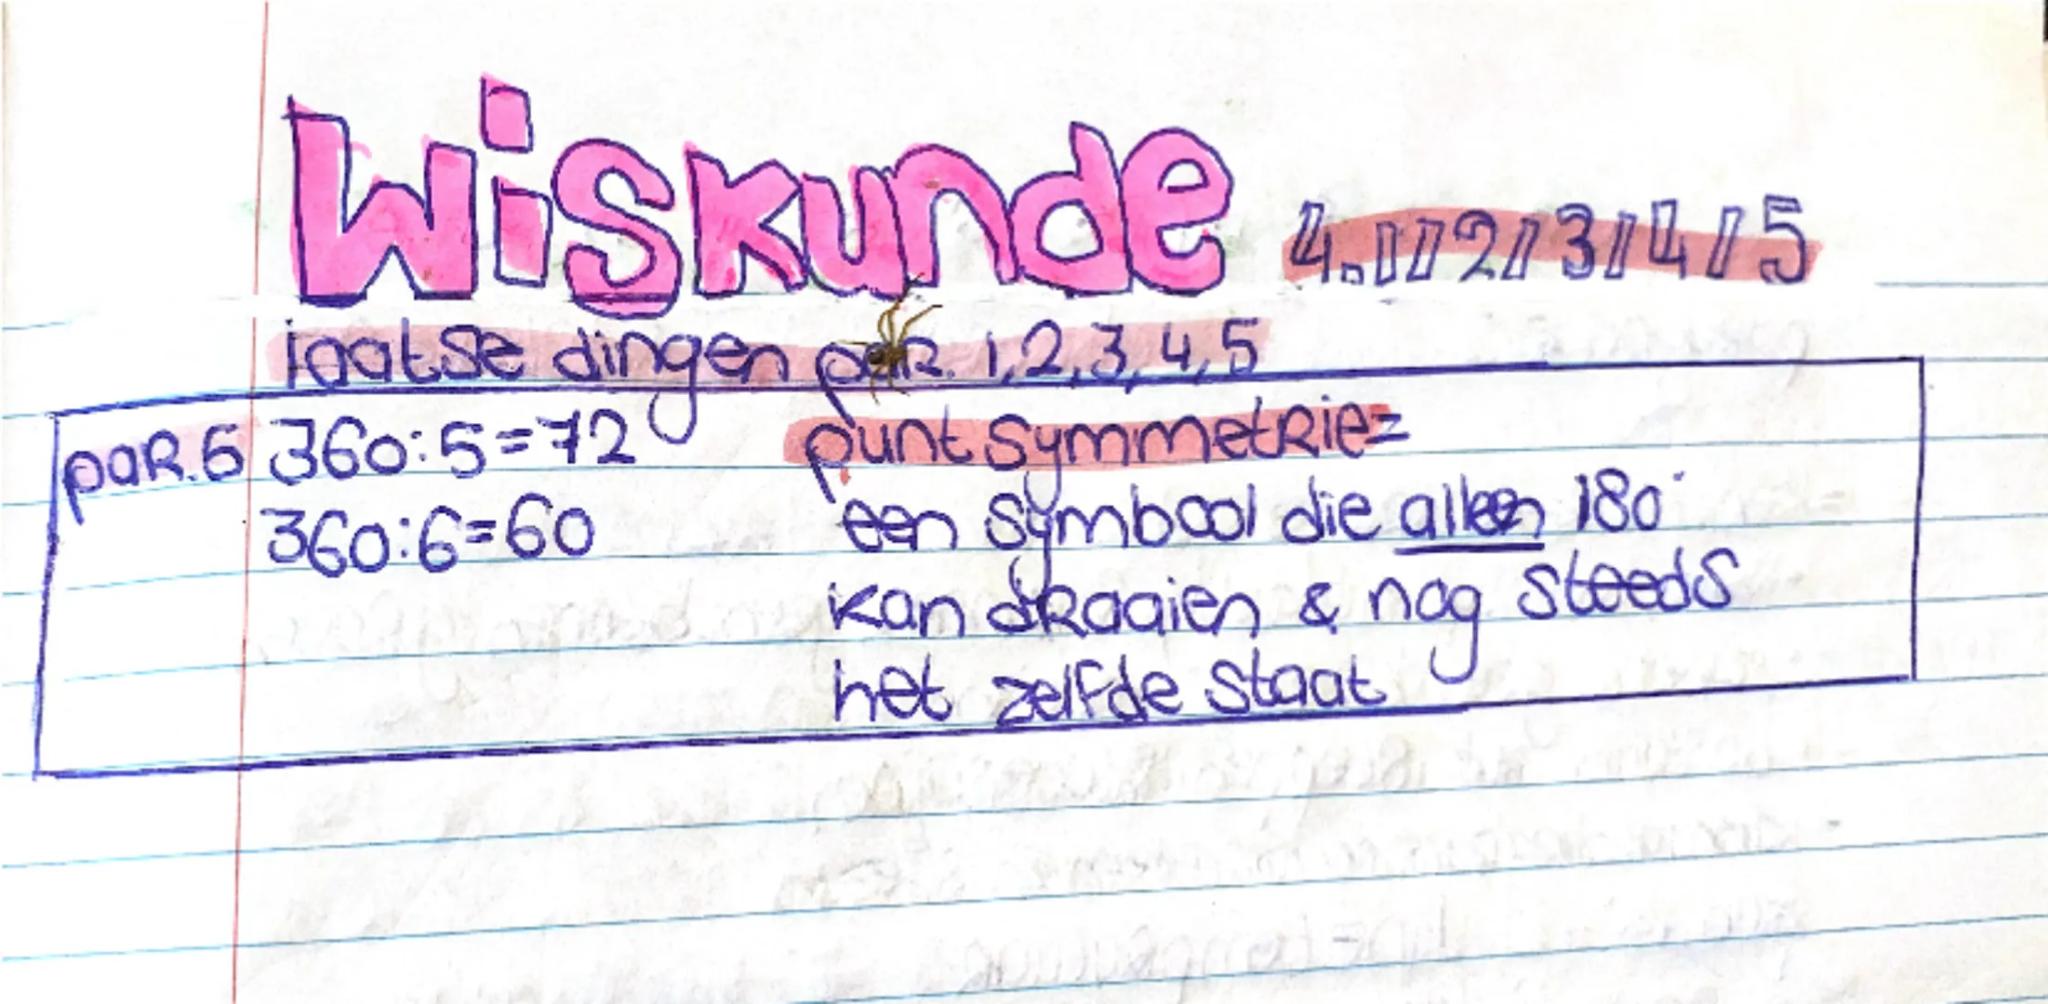 Wiskunde 4.1/2/3/4/5
laatse dingen par. 1,2,3,4,5
par.5 360:5=72
360:6=60
puntsymmetrie=
een symbool die alleen 180°
kan draaien & nog steeds
het zelfde staat